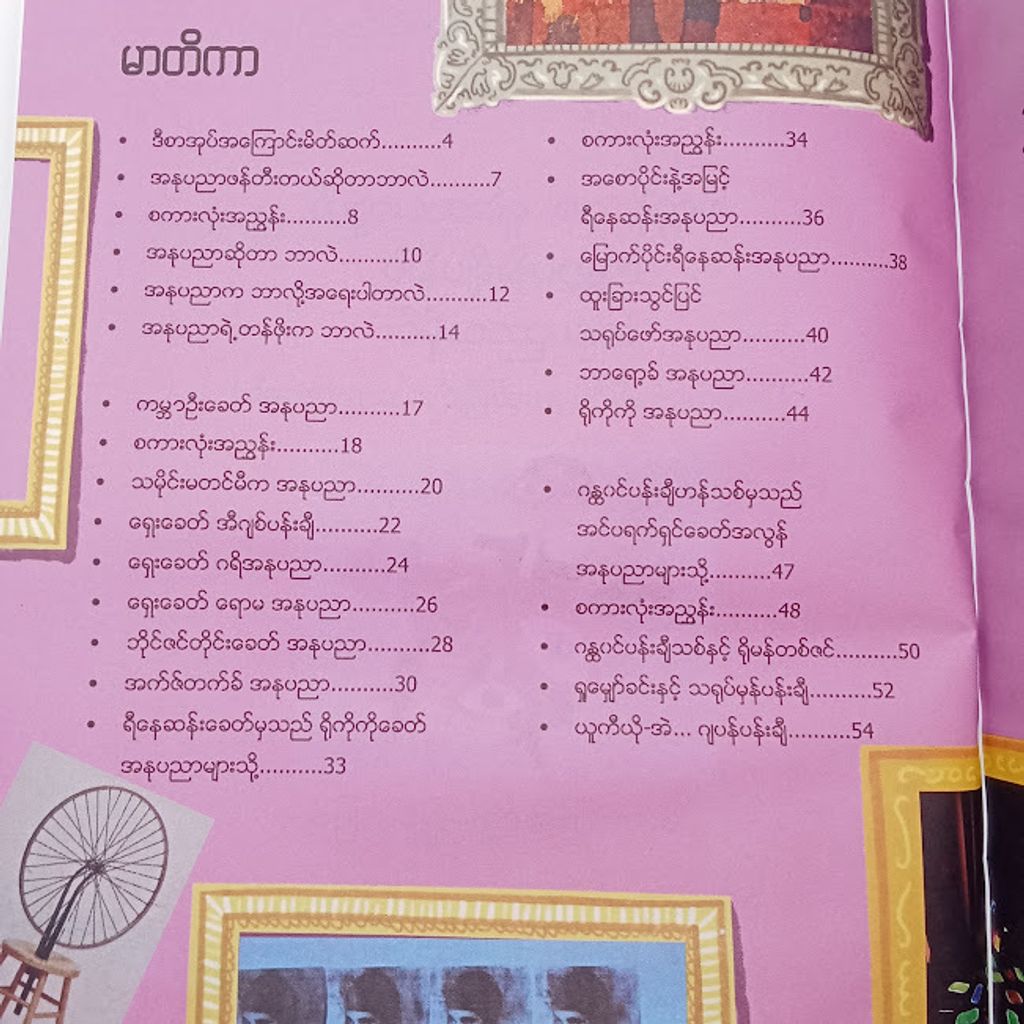 မာတိကာ
• ဒီစာအုပ်အကြောင်းမိတ်ဆက်..........4
• အနုပညာဖန်တီးတယ်ဆိုတာဘာလဲ..........7
• စကားလုံးအညွှန်း..........8
• အနုပညာဆိုတာ ဘာလဲ..........10
• အနုပညာက ဘာလို့အရေးပါတာလဲ..........12
• အနုပညာရဲ့တန်ဖိုးက ဘာလဲ..........14
• ကမ္ဘာဦးခေတ် အနုပညာ..........17
• စကားလုံးအညွှန်း..........18
• သမိုင်းမတင်မီက အနုပညာ..........20
• ရှေးခေတ် အီဂျစ်ပန်းချီ..........22
• ရှေးခေတ် ဂရိအနုပညာ..........24
• ရှေးခေတ် ရောမ အနုပညာ..........26
• ဘိုင်ဇင်တိုင်းခေတ် အနုပညာ..........28
• အက်ဇ်တက်ခ် အနုပညာ..........30
• ရီနေဆန်းခေတ်မှသည် ရိုကိုကိုခေတ်
အနုပညာများသို့..........33
• စကားလုံးအညွှန်း..........34
• အစောပိုင်းနဲ့အမြင့်
ရီနေဆန်းအနုပညာ..........36
• မြောက်ပိုင်းရီနေဆန်းအနုပညာ..........38
• ထူးခြားသွင်ပြင်
သရုပ်ဖော်အနုပညာ..........40
• ဘာရော့ခ် အနုပညာ..........42
• ရိုကိုကို အနုပညာ..........44
• ဂန္ထဝင်ပန်းချီဟန်သစ်မှသည်
အင်ပရက်ရှင်ခေတ်အလွန်
အနုပညာများသို့..........47
• စကားလုံးအညွှန်း..........48
• ဂန္ထဝင်ပန်းချီသစ်နှင့် ရိုမန်တစ်ဇင်..........50
• ရှုမျှော်ခင်းနှင့် သရုပ်မှန်ပန်းချီ..........52
• ယူကီယို-အဲ... ဂျပန်ပန်းချီ..........54